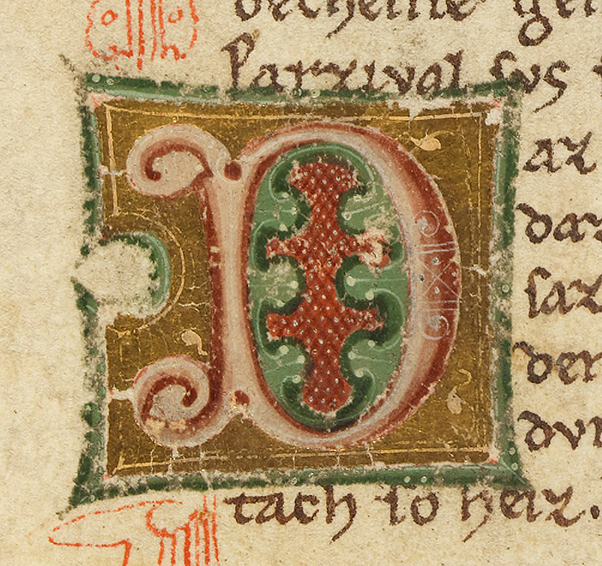 decheine gen
Parzival svs
D az
daz
saz
der
dvr
tach so heiz.